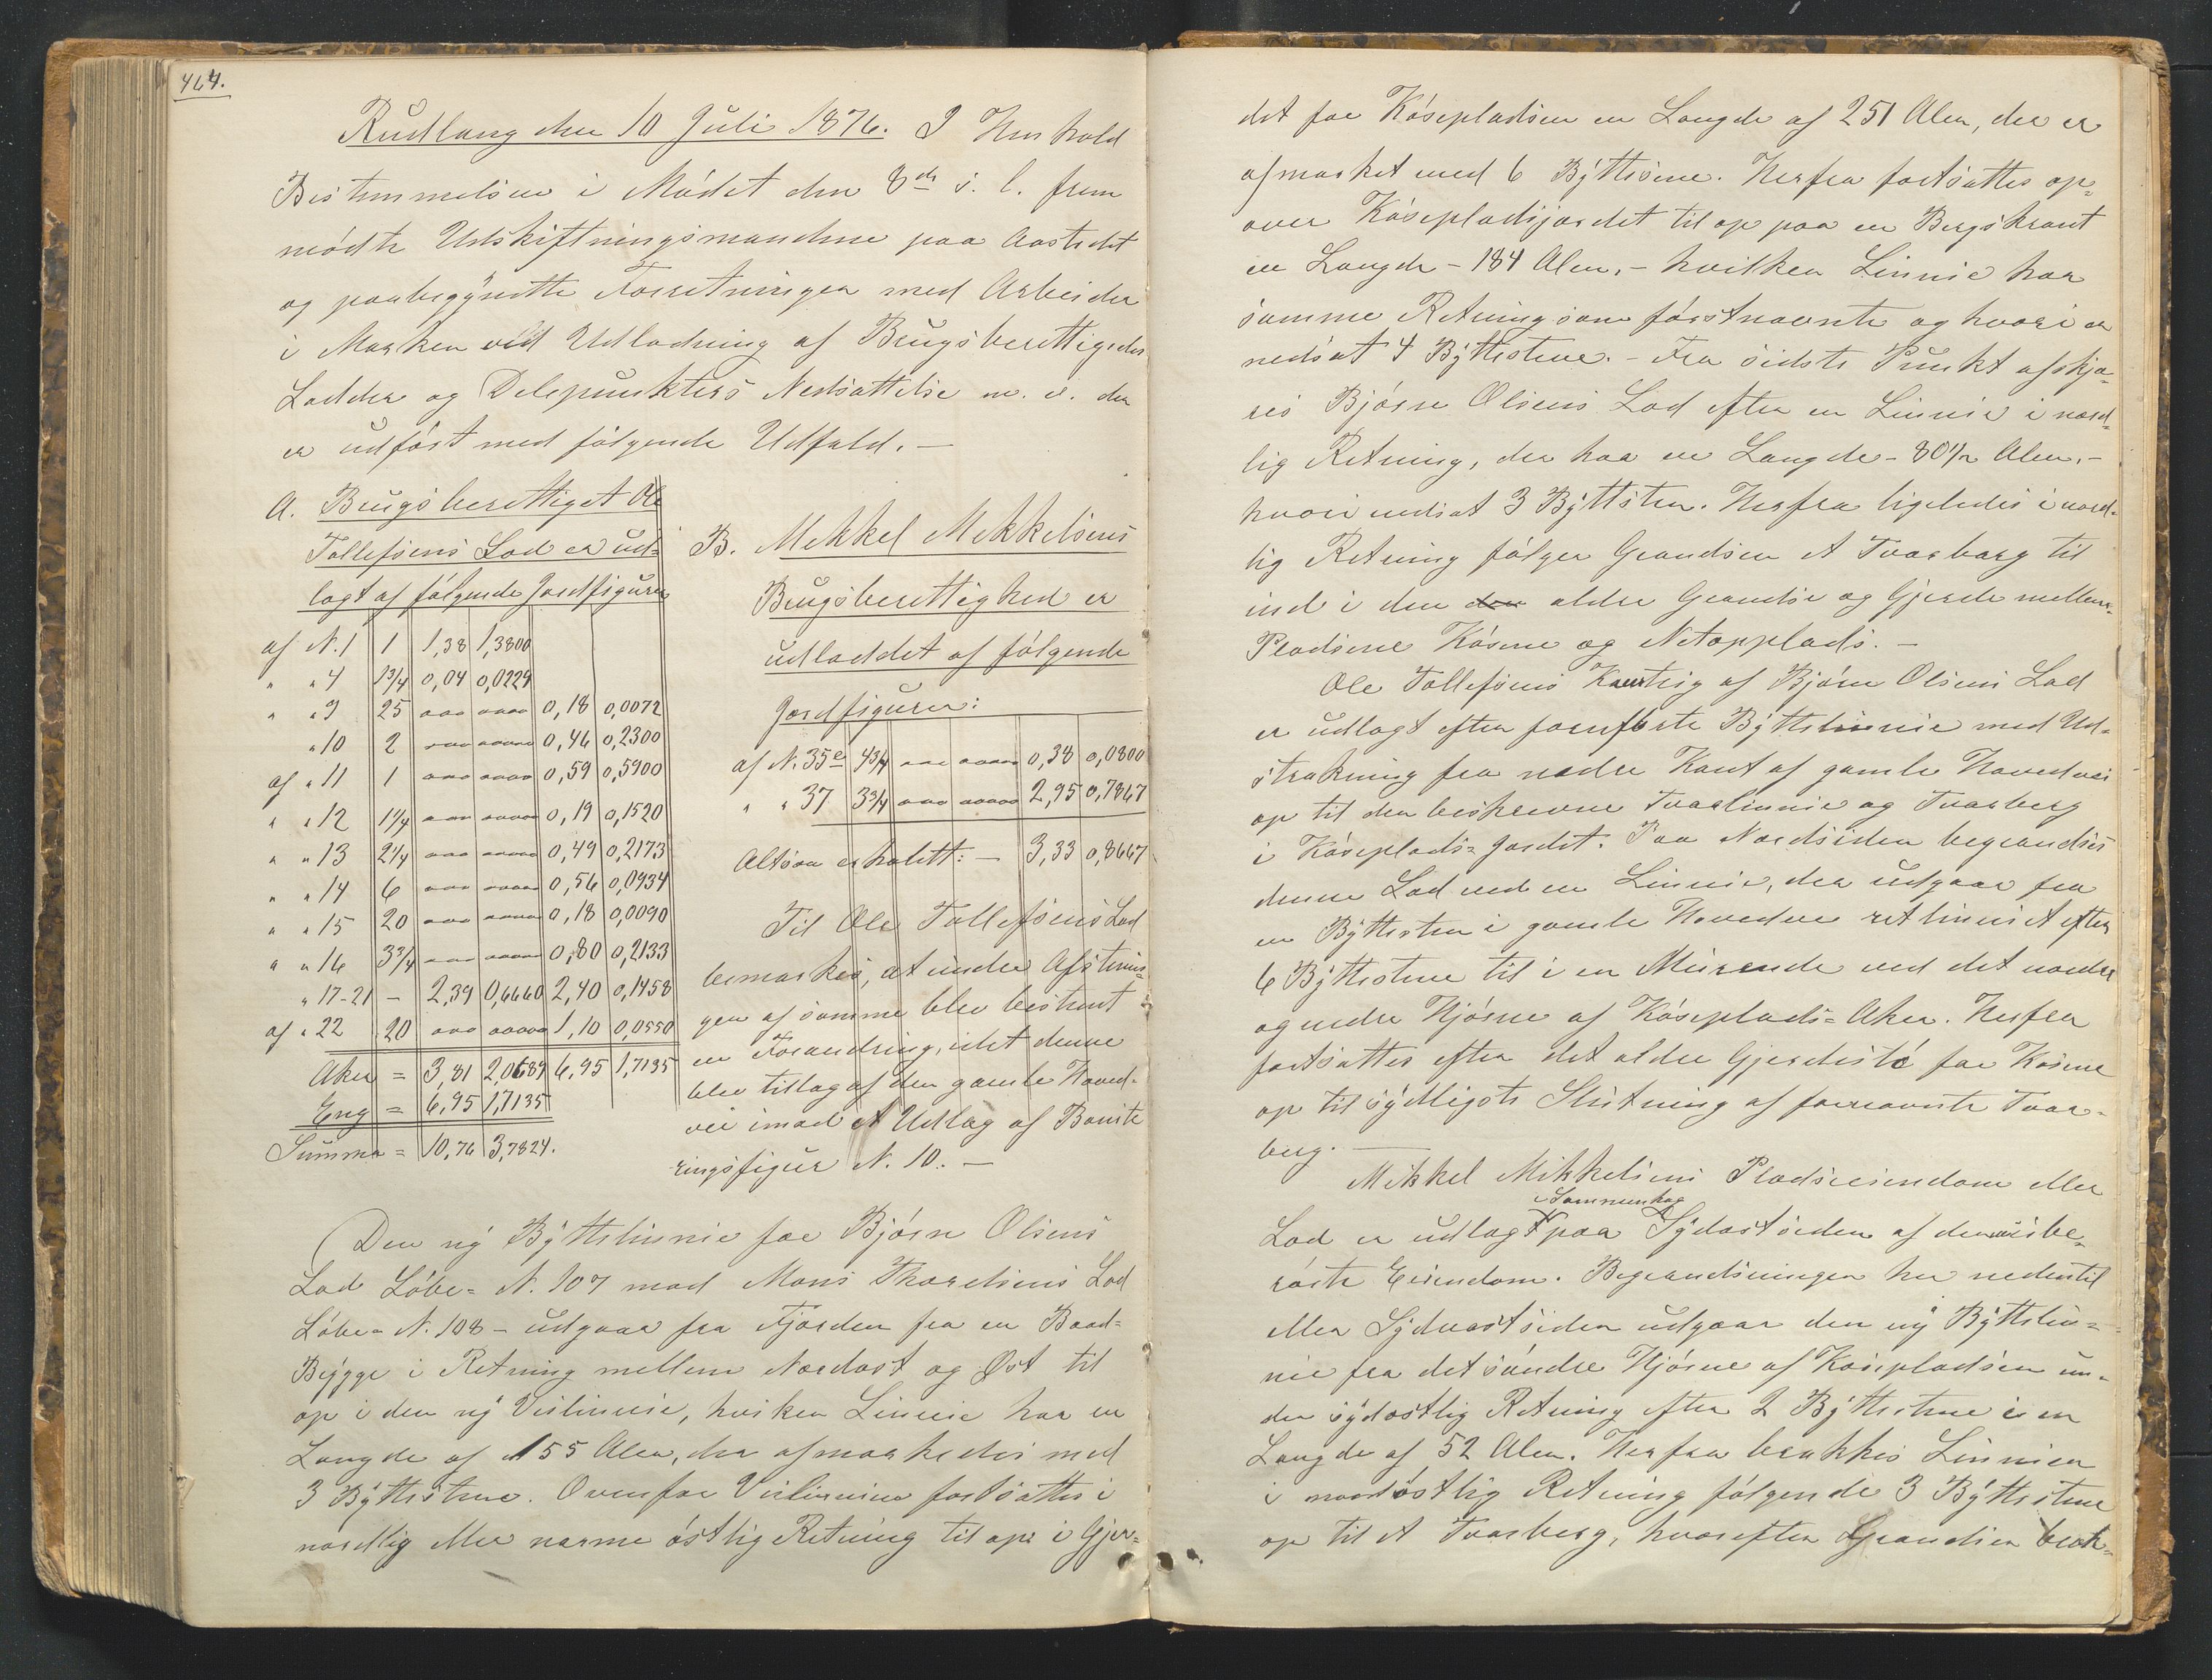 464.
Rudlang den 10 Juli 1876. I Henhold
Bestemmelsen i Mødet den 8de s. l. frem
mødte Udskiftningsmændene paa Aastedet
og paabegyndte Forretningen med Arbeider
i Marken ved Udlodning af Brugsberettigedes
Lodder og Delepunkters Nedsættelse m. v. der
er udført med følgende Udfald. —
A. Brugsberettiget Ole
Tollefsens Lod er ud-
lagt af følgende Jordfigurer
af N. 1 | 1 | 1,38 | 1,3800
" " 4 | 1 3/4 | 0,04 | 0,0229
" " 9 | 25 | ooo | oooo | 0,18 | 0,0072
" 10 | 2 | ooo | oooo | 0,46 | 0,2300
af " 11 | 1 | ooo | oooo | 0,59 | 0,5900
" " 12 | 1 1/4 | ooo | oooo | 0,19 | 0,1520
" " 13 | 2 1/4 | ooo | oooo | 0,49 | 0,2173
" " 14 | 6 | ooo | oooo | 0,56 | 0,0934
" " 15 | 20 | ooo | oooo | 0,18 | 0,0090
" " 16 | 3 3/4 | ooo | oooo | 0,80 | 0,2133
" 17-21 | - | 2,39 | 0,6660 | 2,40 | 0,1458
af " 22 | 20 | ooo | ooooo | 1,10 | 0,0550
Aker = | 3,81 | 2,0689 | 6,95 | 1,7135
Eng = | 6,95 | 1,7135
Summa = | 10,76 | 3,7824.
B. Mekkel Mekkelsens
Brugsberettighed er
udloddet af følgende
Jordfigurer:
af N. 35 e | 4 3/4 | ooo | ooooo | 0,38 | 0,0800
" " 37 | 3 3/4 | ooo | ooooo | 2,95 | 0,7867
Altsaa erholdt: — | 3,33 | 0,8667
Til Ole Tollefsens Lod
bemærkes, at under Afstemin-
gen af samme blev bestemt
en Forandring, idet denne
blev tillag af den gamle Hoved-
vei imod et Udlæg af Bonite
ringsfigur N. 10. —
Den ny Bytteslinnie for Bjørn Olsens
Lod Løbe- N. 107 mod Mons Thordsens Lod
Løbe- N. 108 - udgaar fra Fjorden fra en Baad-
Bygge i Retning mellem Nordost og Øst til
op i den ny Veilinnie, hviken Linnie har en
Længde af 155 Alen, der afmærkedes med
3 Byttestene. Ovenfor Veilinnien fortsættes i
nordlig eller nærme østlig Retning til op i Gjer-
det for Kåsepladsen en Længde af 251 Alen, der er
afmærket med 6 Byttestene. Herfra fortsættes op-
over Kåsepladsjordet til op paa en Bergskrænt
en Længde - 184 Alen, - hvilken Linnie har
samme Retning som førstnævnte og hvori er
nedsat 4 Byttestene. - Fra sidste Punkt afskjæ-
res Bjørn Olsens Lod efter en Linnie i nord-
lig Retning, der har en Længde - 80 1/2 Alen, -
hvori nedsat 3 Byttesten. Herfra ligeledes i nord-
lig Retning følger Grændsen et Tværbærg til
ind i den den ældre Grændse og Gjerde mellem
Pladsene Kåsene og Netopplads. —
Ole Tollefsens Kaarteig af Bjørn Olsens Lod
er udlagt efter foranførte Byttelinnie med Ud-
strækning fra nedre Kant af gamle Hovedvei
op til den beskrevne Tværlinnie og Tværberg
i Kåseplads-Jordet. Paa Nordsiden begrændses
denne Lod ved en Linnie, der udgaar fra
en Byttesten i gamle Hovedvei retliniet efter
6 Byttestene til i en Mürende ved det nordre
og nedre Hjørne af Kåseplads-Aker. Herfra
fortsættes efter det ældre Gjerdestø for Kåsene
op til sydligste Slutning af fornævnte Tvær-
berg. —
Mekkel Mikkelsens Pladseiendom eller
Lod er udlagt i Sammenhæg paa Sydostsiden af denne be-
rørte Eiendom. Begrændsningen her nedentil
eller Sydvestsiden udgaar den ny Bytteslin-
nie fra det søndre Hjørne af Kåsepladsen un-
der sydostlig Retning efter 2 Byttestene i en
Længde af 52 Alen. Herfra brækkes Linnien
i nordøstlig Retning følgende 3 Byttestene
op til et Tværberg, hvorefter Grændsen bræk-